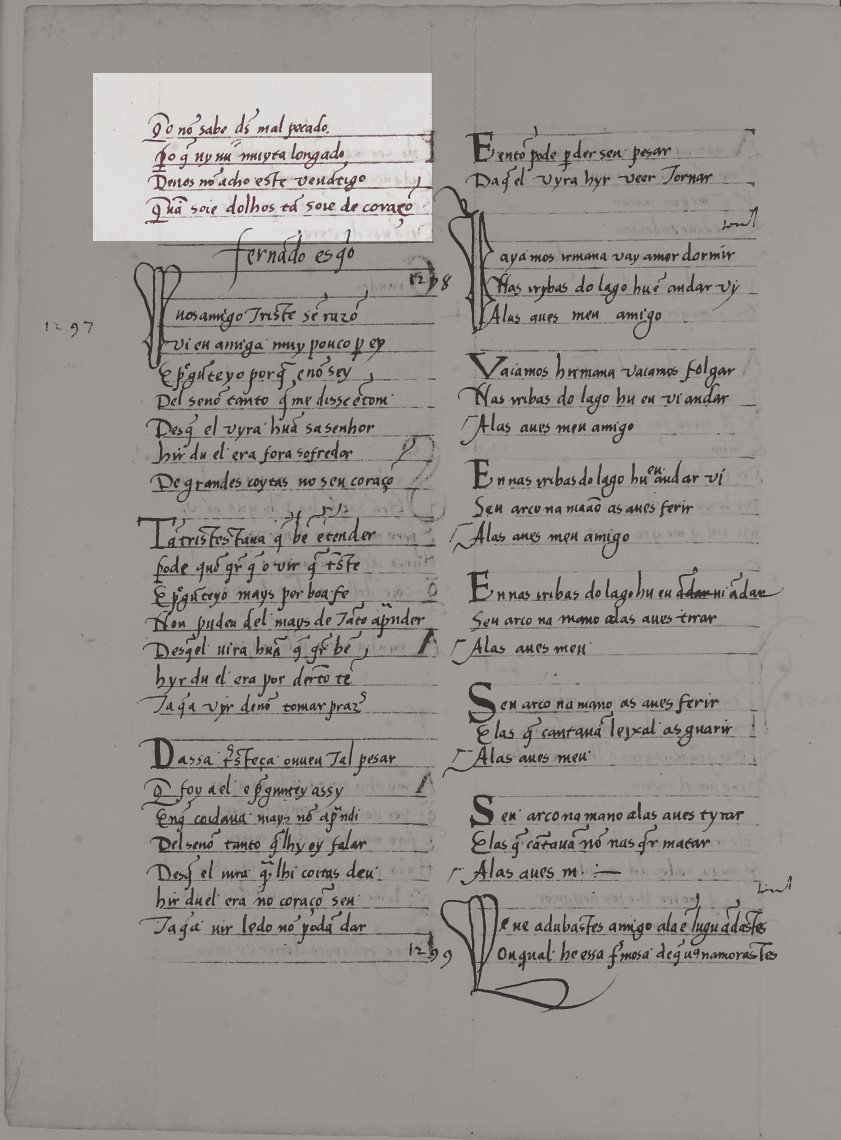 Q̃o nõ sabe dš mal pecado.
Po q̃ uy nũ muyta longado
Denos nõ acho este uentigo
Quã soie dolhos tã soie de coraçõ
fernãdo esg̃o
1298
1297
Vuosamigo Triste sẽ razõ
vi eu amiga muy pouco p ey
E p̃gũteyo porq̃ enõ sey
Del senõ tanto q̃ me disse etom
Desq̃ el vyra huã sa senhor
hir du el era fora sofredor
De grandes coytas no seu coraçõ
Tã tristestaua q̃ bẽ ẽtender
pode quẽ q̃r q̃ o vir q̃ t̃ste
E p̃gũteyo mays por boa fe
Non pudeu del mays de Tãto ap̃nder
Desq̃el uira huã q̃ q̃r bẽ
hyr du el era por derto tẽ
Ta q̃a vyr denõ tomar praz̃
Dassa t̃steça ouueu Tal pesar
Q̃ foy a el e p̃guntey assy
Enq̃ coidaua mays nõ ap̃ndi
Del senõ tanto q̃ lhy oy falar
Desq̃ el uira q̃ lhi coitas deu
hir du el era no coraçõ seu
Ta q̃a uir ledo nõ podã dar
1299
E entõ pode p der seu pesar
Da q̃ el vyra hyr veer Tornar
Vayamos irmana vay amor dormir
Nas irybas do lago hu eu andar vy
Alas aues meu amigo
Vaiamos hirmana vaiamos folgar
Nas iribas do lago hu eu vi andar
Alas aues meu amigo
En nas iribas do lago hu eu andar vi
Seu arco na mãao as aues ferir
Alas aues meu amigo
En nas iribas do lago hu eu ui ãdar
Seu arco na mano alas aues tirar
Alas aues meu
Seu arco na mano as aues ferir
E las q̃ cantauã leixal as guarir
Alas aues meu
Seu arco na mano alas aues tyrar
E las q̃ cãtauã nõ nas q̃r matar
Alas aues m
Que adubastes amigo ala ẽ lugu ãdastes
Ou qual he essa f̃mosa de q̃ uꝯ namorastes